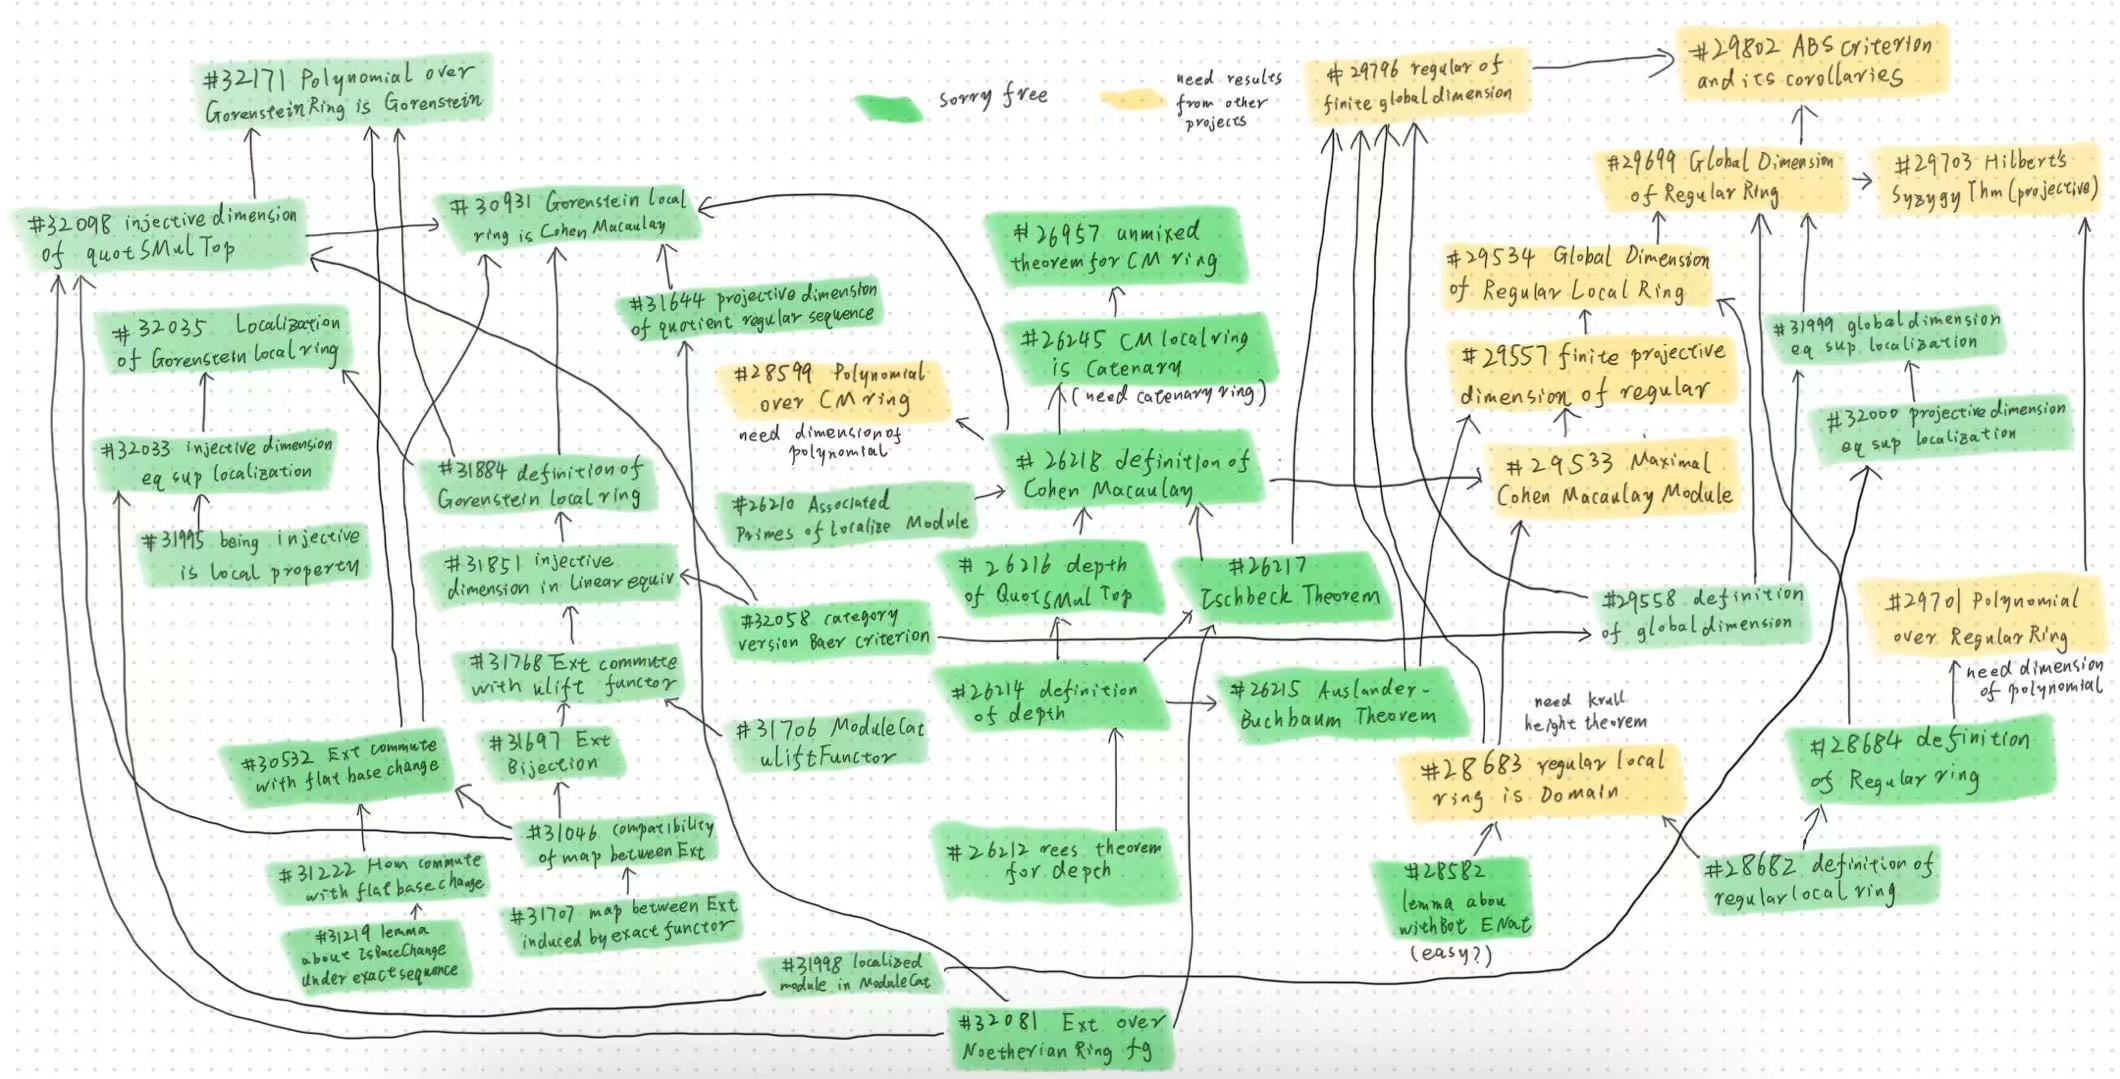 #32171 Polynomial over
GorensteinRing is Gorenstein
sorry free
need results
from other
projects
#29796 regular of
finite global dimension
#29802 ABS criterion
and its corollaries
#29699 Global Dimension
of Regular Ring
#29703 Hilbert's
Syzygy Thm (projective)
#32098 injective dimension
of quotSMulTop
#30931 Gorenstein local
ring is Cohen Macaulay
#26957 unmixed
theorem for CM ring
#29534 Global Dimension
of Regular Local Ring
#31644 projective dimension
of quotient regular sequence
#32035 Localization
of Gorenstein local ring
#26245 CM local ring
is Catenary
(need catenary ring)
#31999 global dimension
eq sup localization
#29557 finite projective
dimension of regular
#28599 Polynomial
over CM ring
need dimension of
polynomial
#32000 projective dimension
eq sup localization
#32033 injective dimension
eq sup localization
#31884 definition of
Gorenstein local ring
#26218 definition of
Cohen Macaulay
#29533 Maximal
Cohen Macaulay Module
#26210 Associated
Primes of Localize Module
#31995 being injective
is local property
#31851 injective
dimension in linear equiv
#26216 depth
of QuotSMulTop
#26217
Ischbeck Theorem
#29558 definition
of global dimension
#29701 Polynomial
over Regular Ring
need dimension
of polynomial
#32058 category
version Baer criterion
#31768 Ext commute
with ulift functor
#26214 definition
of depth
#26215 Auslander-
Buchbaum Theorem
need krull
height theorem
#31706 ModuleCat
uliftFunctor
#30532 Ext commute
with flat base change
#31697 Ext
Bijection
#28683 regular local
ring is Domain
#28684 definition
of Regular ring
#31046 compatibility
of map between Ext
#26212 rees theorem
for depth
#31222 Hom commute
with flat base change
#28582
lemma abou
withBot ENat
(easy?)
#28682 definition of
regular local ring
#31707 map between Ext
induced by exact functor
#31219 lemma
about IsBaseChange
under exact sequence
#31998 localized
module in ModuleCat
#32081 Ext over
Noetherian Ring fg